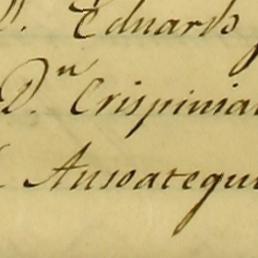 D. Eduardo
D.n Crispinia
Ansoategui